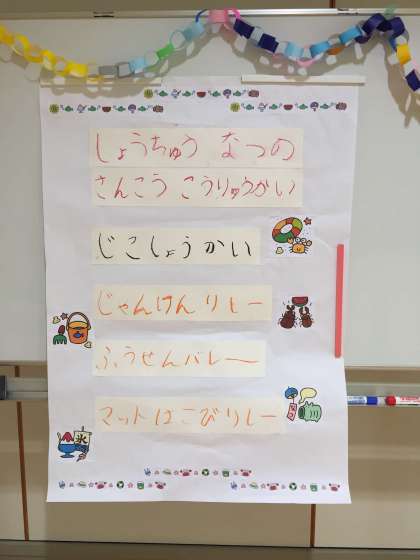 しょうちゅう なつの
さんこう こうりゅうかい
じこしょうかい
じゃんけんリレー
ふうせんバレー
マットはこびリレー
氷